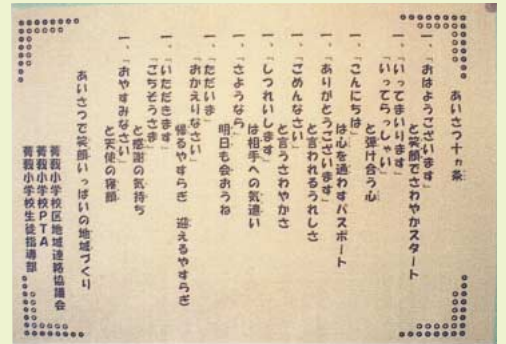 あいさつ十ヵ条
一、「おはようございます」
と笑顔でさわやかスタート
一、「いってまいります」
「いってらっしゃい」
と弾け合う心
一、「こんにちは」
は心を通わすパスポート
一、「ありがとうございます」
と言われるうれしさ
一、「ごめんなさい」
と言うさわやかさ
一、「しつれいします」
は相手への気遣い
一、「さようなら」
明日も会おうね
一、「ただいま」
「おかえりなさい」
帰るやすらぎ 迎えるやすらぎ
一、「いただきます」
「ごちそうさま」
と感謝の気持ち
一、「おやすみなさい」
と天使の寝顔
あいさつで笑顔いっぱいの地域づくり
菁莪小学校区地域連絡協議会
菁莪小学校PTA
菁莪小学校生徒指導部